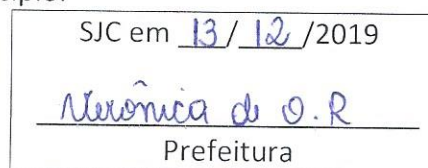 SJC em 13/12/2019
Verônica de O.R
Prefeitura